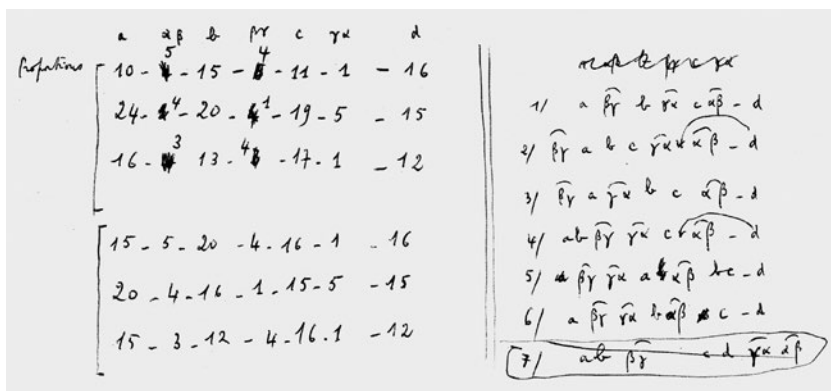 a αβ b βγ c γα d
5 4
Proportions 10 - - 15 - - 11 - 1 - 16
24 - 4 - 20 - 1 - 19 - 5 - 15
16 - 3 13 - 4 - 17 - 1 - 12
15 - 5 - 20 - 4 - 16 - 1 - 16
20 - 4 - 16 - 1 - 15 - 5 - 15
15 - 3 - 12 - 4 - 16 . 1 - 12
1/ a βγ b γα c αβ - d
2/ βγ a b c γα αβ - d
3/ βγ a γα b c αβ - d
4/ ab βγ γα c αβ - d
5/ βγ γα a αβ bc - d
6/ a βγ γα b αβ c - d
7/ ab βγ c d γα αβ